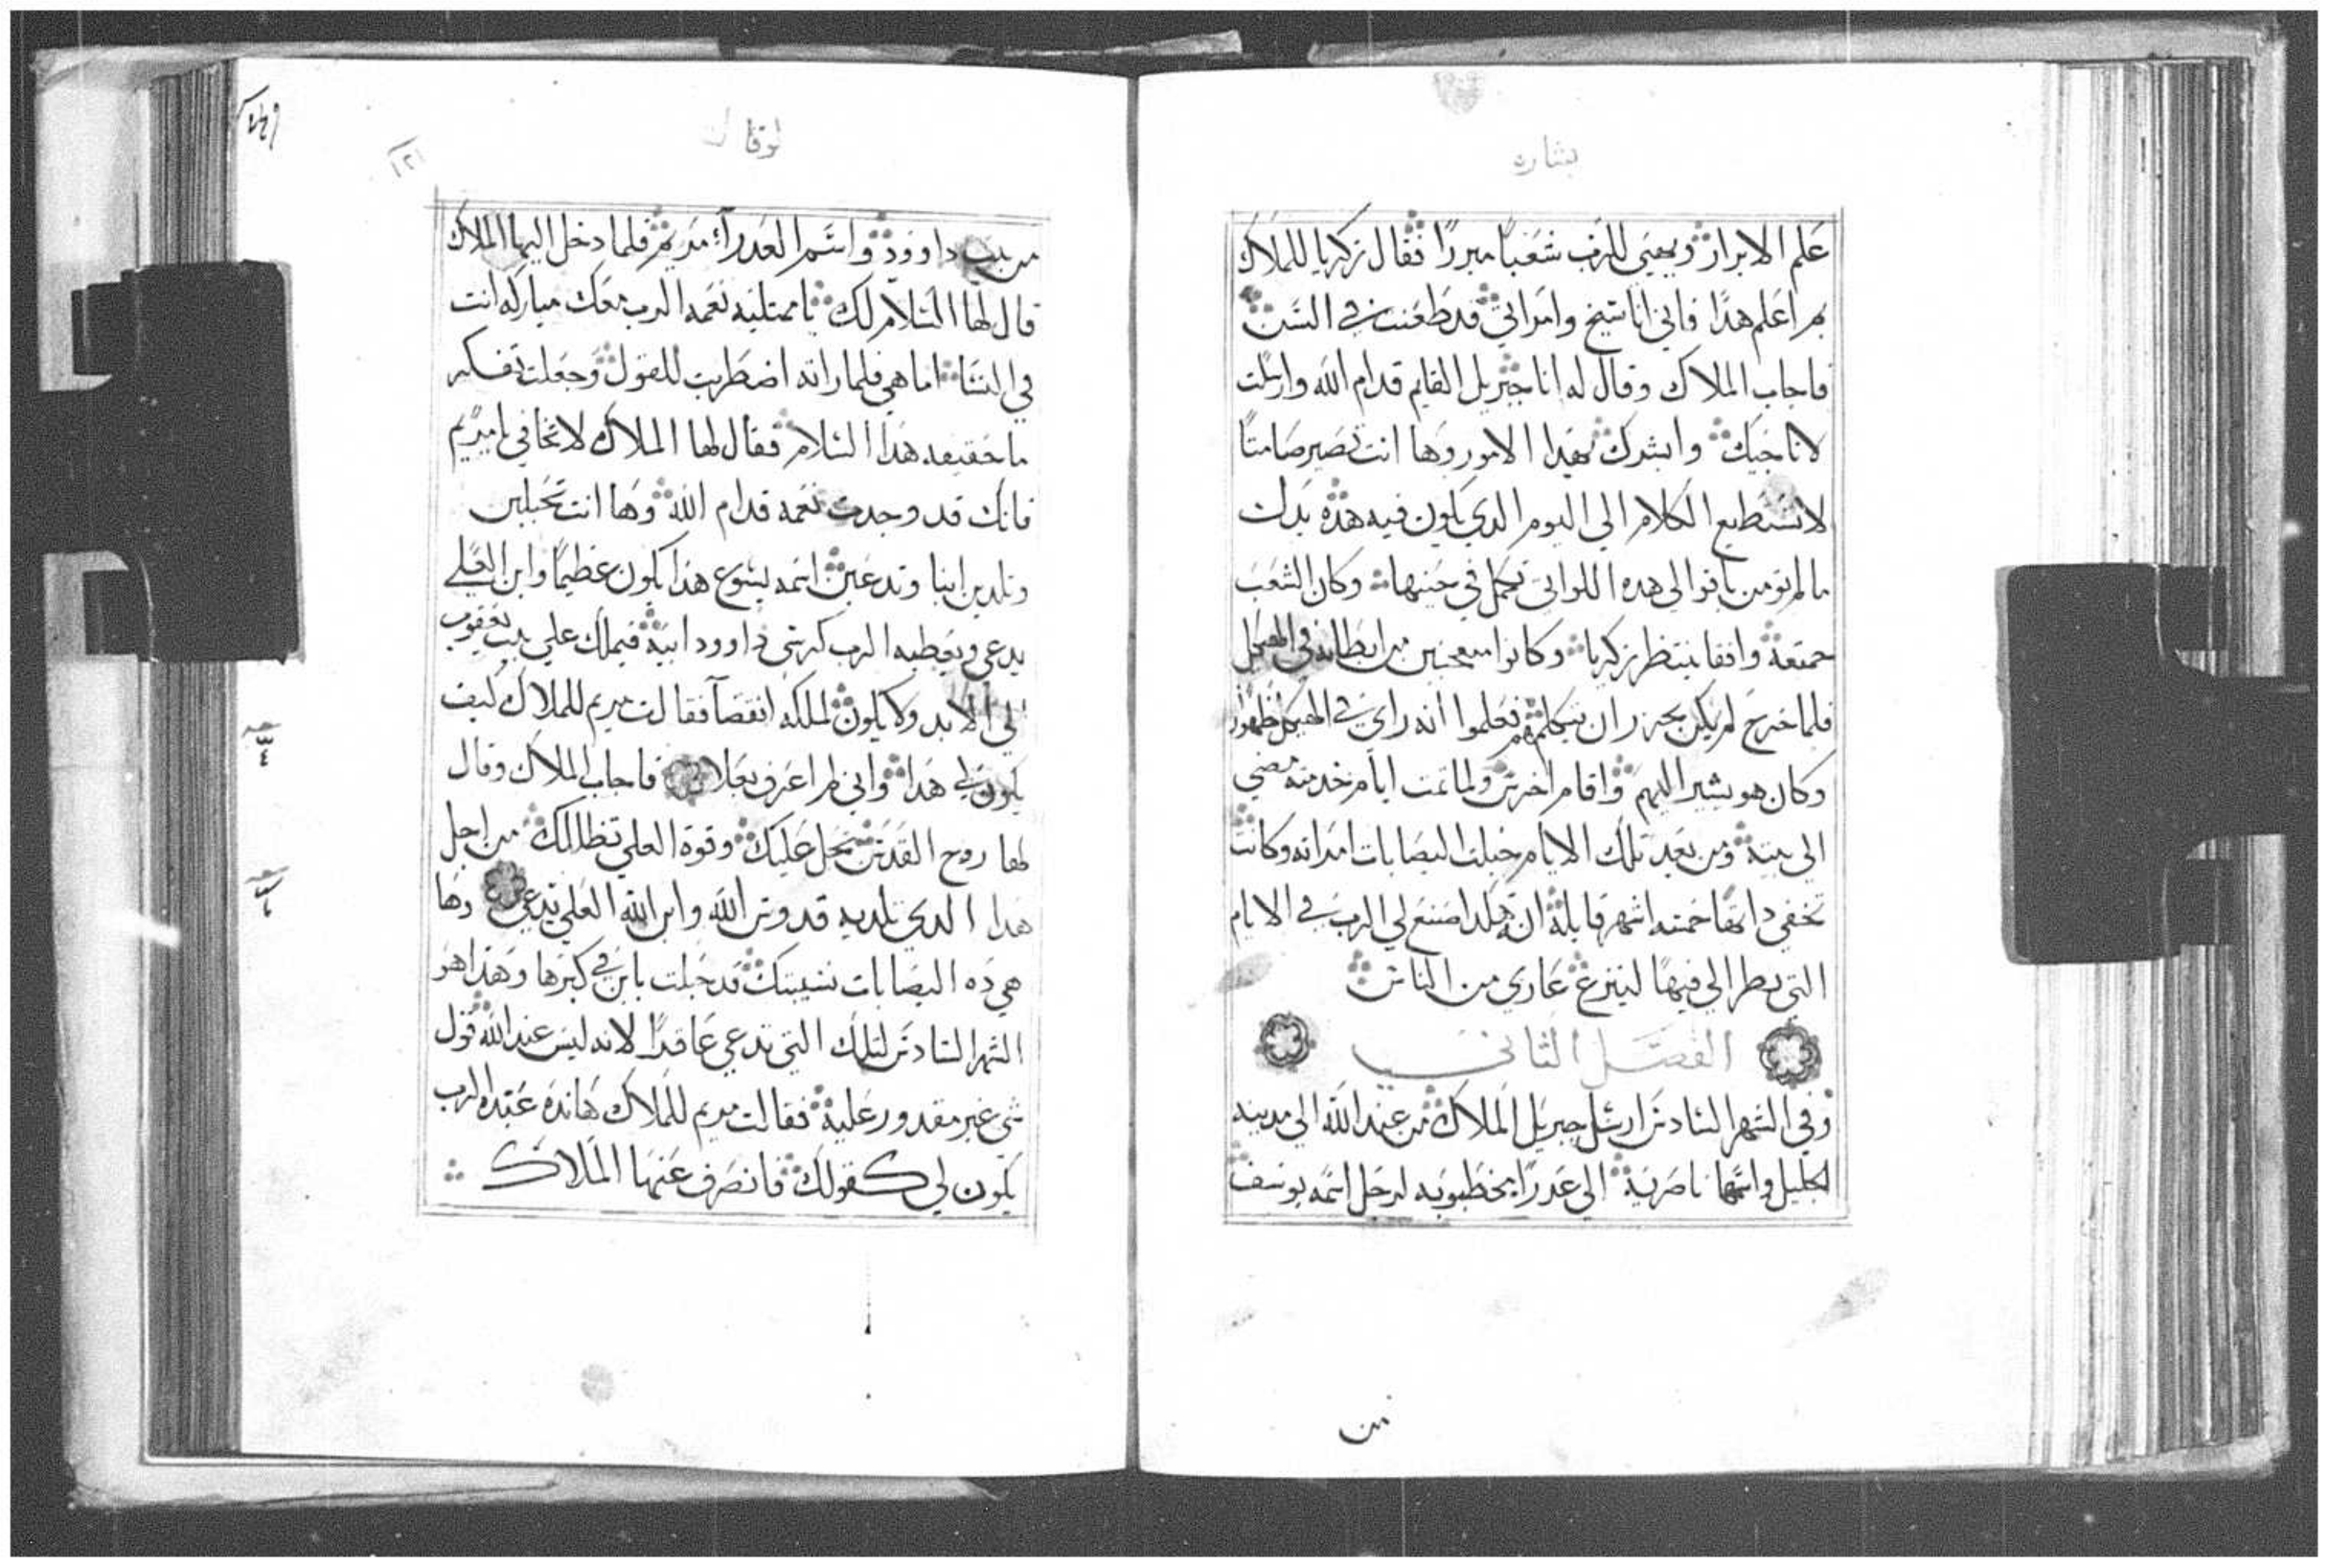 بشارة
علم الابرار ويهيى للرب شعبًا مبررًا فقال زكريا للملاك
بم اعلم هدا فاني انا شيخ وامراتي قد طعنت في السن
فاجاب الملاك وقال له انا جبريل القايم قدام الله وارسلت
لاناجيك وابشرك بهدا الامور وها انت تصير صامتًا
لا تستطيع الكلام الي اليوم الدي يكون فيه هده بدل
ما لم تومن باقوالي هده اللواتي تكمل في حينها وكان الشعب
مجتمعة واقفا ينتظر زكريا وكانوا متعجبين من ابطايه في الهيكل
فلما خرج لم يكن يجزر ان يتكلمهم فعلموا انه راى في الهيكل ظهورًا
وكان هو يشير اليهم واقام اخرس ولما تمت ايام خدمته مضي
الي بيته ومن بعد تلك الايام حبلت اليصابات امراته وكانت
تخفي داتها خمسه اشهر قايلة انه هكدا صنع لي الرب في الايام
التي نظر الي فيها لينزع عاري من الناس
الفصل الثاني
وفي الشهر السادس ارسل جبريل الملاك من عند الله الي مدينه
الجليل واسمها ناصرية الي عدرا مخطوبه لرجل اسمه يوسف
من
لوقا
من بيت داوود واسم العدرآء مريم فلما دخل اليها الملاك
قال لها السلام لك يا ممتليه نعمه الرب معك مباركه انت
في النسا اما هي فلما راته اضطربت للقول وجعلت تفكر
ما حقيقه هدا السلام فقال لها الملاك لا تخافي يا مريم
فانك قد وجدت نعمه قدام الله وها انت تحبلين
وتلدين ابنا وتدعين اسمه يسوع هدا يكون عظيمًا وابن العلي
يدعي ويعطيه الرب كرسي داوود ابيه فيملك علي بيت يعقوب
الي الابد ولا يكون لملكه انقضآ فقالت مريم للملاك كيف
يكون لي هدا واني لم اعرف بعلا فاجاب الملاك وقال
لها روح القدس تحل عليك وقوة العلي تظالك من اجل
هدا الدي تلديه قدوس الله وابن الله العلي يدعي وها
هي ده اليصابات نسيبتك قد حبلت بابن في كبرها وهدا هو
الشهر السادس لتلك التي تدعي عاقرًا لانه ليس عند الله قول
شي غير مقدور عليه فقالت مريم للملاك هانده عبده الرب
يكون لي كقولك فانصرف عنها الملاك